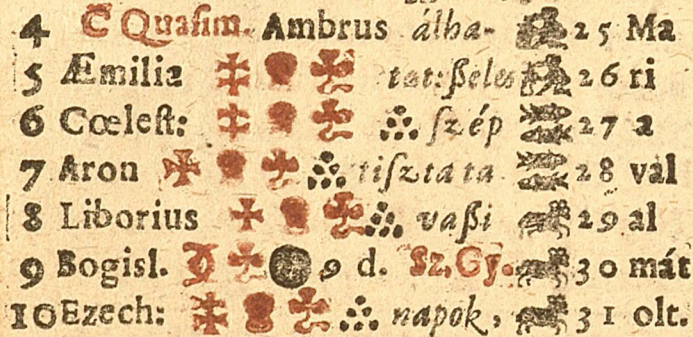 4 C Quasim. Ambrus álha- 25 Ma
5 Æmilia tat: ßeles 26 ri
6 Cœlest: ſzép 27 a
7 Aron tiſzta ta 28 val
8 Liborius vaßi 29 al
9 Bogisl. 9 d. Sz. Gy. 30 mát
10 Ezech: napok, 31 olt.